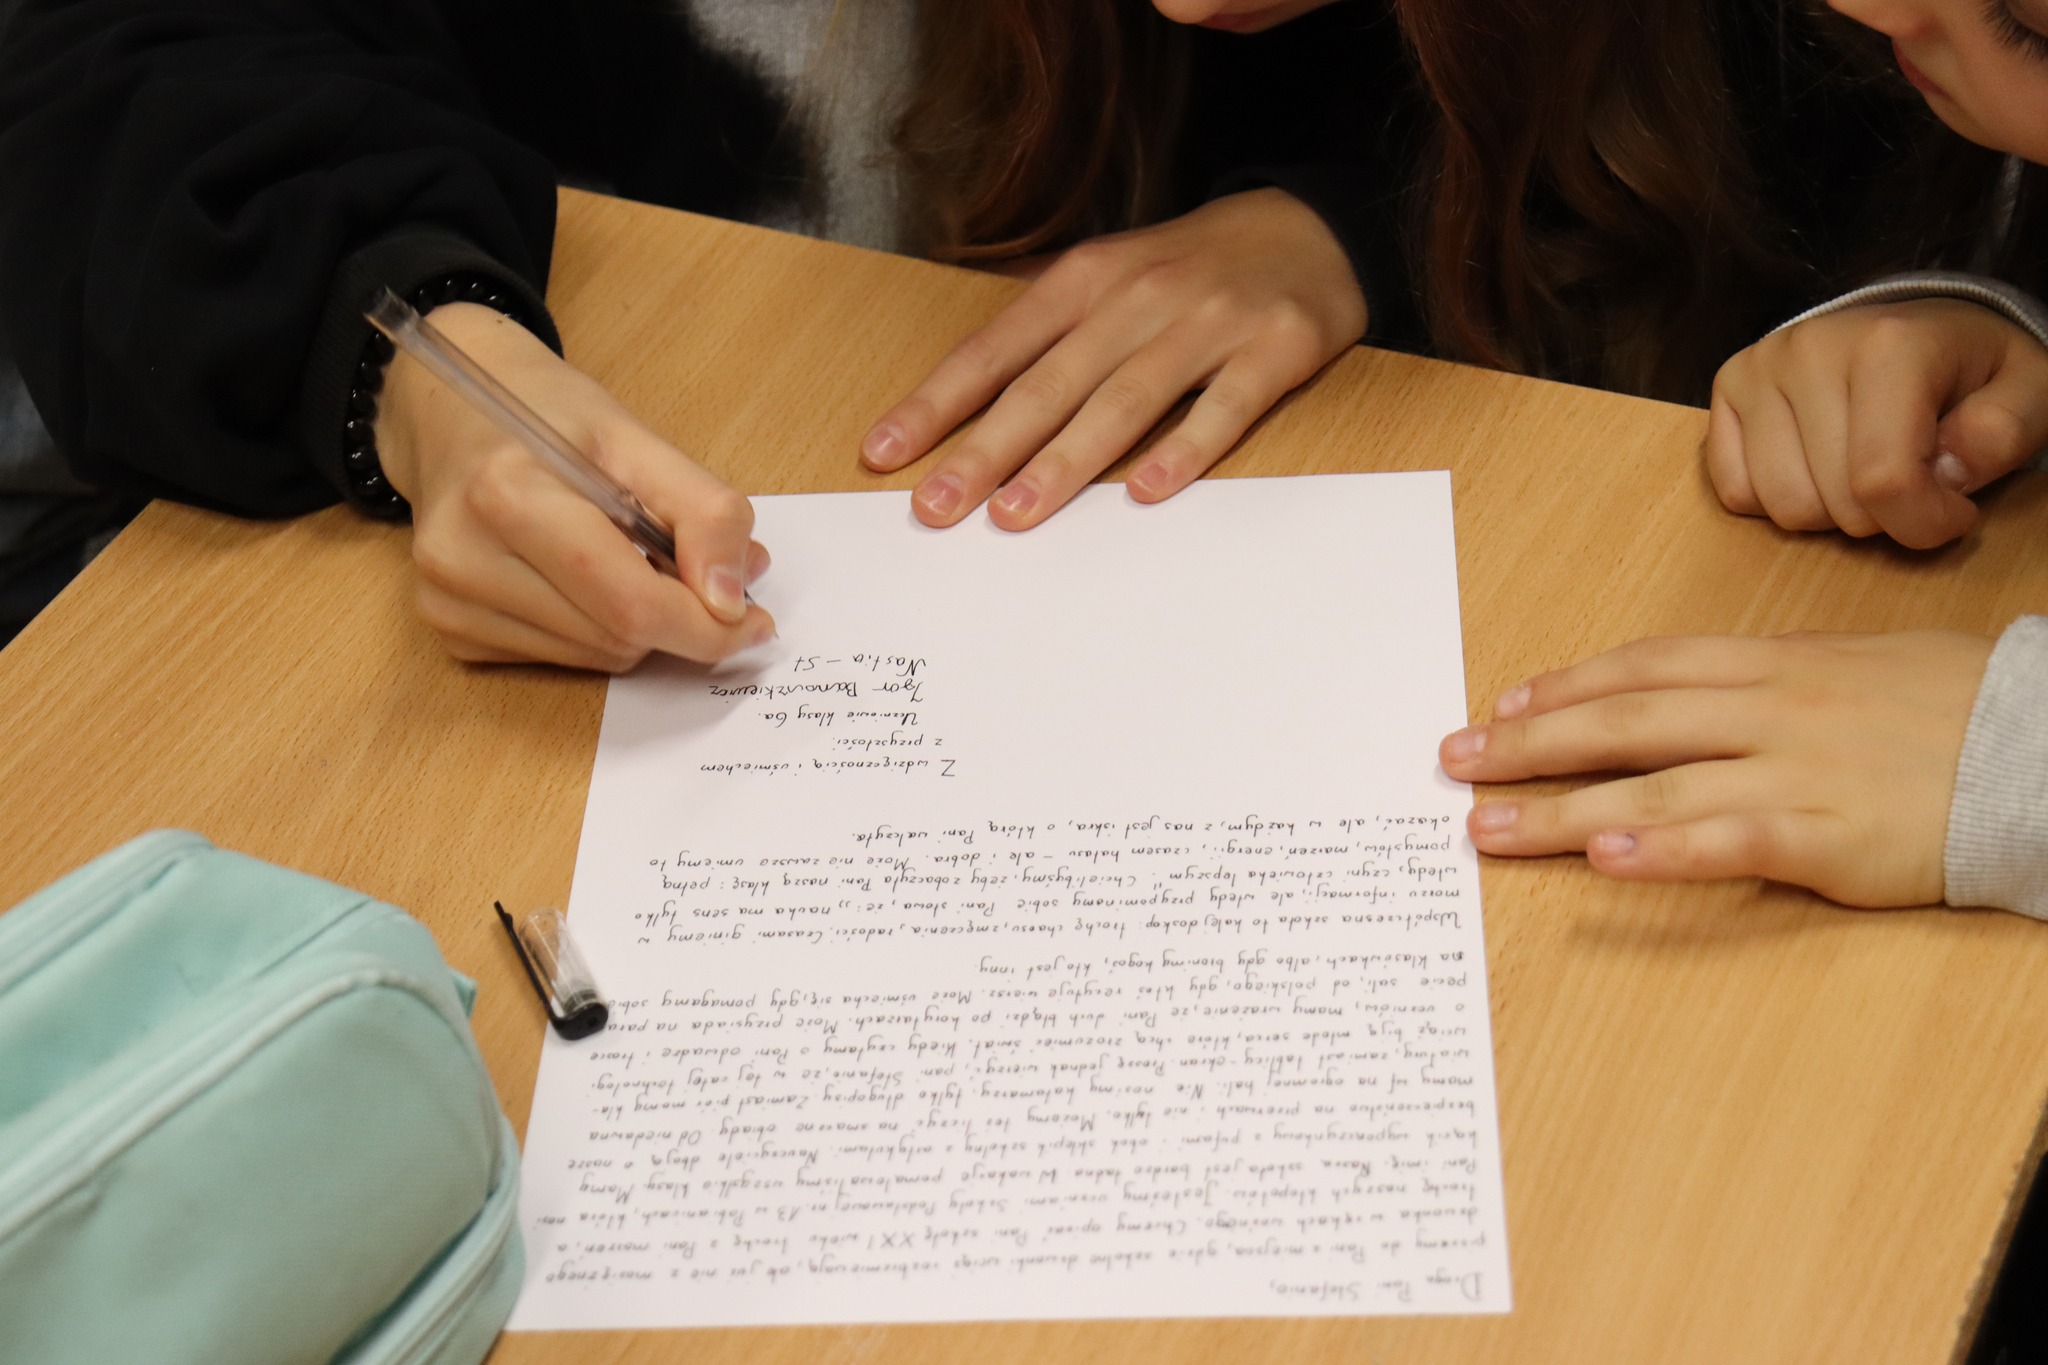 Droga Pani Stefanio,
piszemy do Pani z miejsca, gdzie szkolne dzwonki wciąż rozbrzmiewają, ale już nie z mosiężnego
dzwonka w rękach woźnego. Chcemy opisać Pani szkołę XXI wieku trochę z Pani marzeń, a
trochę naszych kłopotów. Jesteśmy uczniami Szkoły Podstawowej nr 13 w Pabianicach, która nosi
Pani imię. Nasza szkoła jest bardzo ładna W wakacje pomalowaliśmy wszystkie klasy. Mamy
kącik wypoczynkowy z pufami i obok sklepik szkolny z artykułami. Nauczyciele dbają o nasze
bezpieczeństwo na przerwach i nie tylko. Możemy też liczyć na smaczne obiady. Od niedawna
mamy wf na ogromnej hali. Nie nosimy kałamarzy, tylko długopisy. Zamiast piór mamy kla-
wiatury, zamiast tablicy - ekran. Proszę jednak wierzyć, pani Stefanio, że w tej całej technologi
wciąż biją młode serca, które chcą zrozumieć świat. Kiedy czytamy o Pani odwadze i trosce
o uczniów, mamy wrażenie, że Pani duch błądzi po korytarzach. Może przysiada na para
pecie sali, od polskiego, gdy ktoś recytuje wiersz. Może uśmiecha się, gdy pomagamy sobie
na klasówkach, albo gdy bronimy kogoś, kto jest inny.
Współczesna szkoła to kalejdoskop: trochę chaosu, zmęczenia, radości. Czasami giniemy w
morzu informacji, ale wtedy przypominamy sobie Pani słowa, że: ,,nauka ma sens tylko
wtedy, czyni człowieka lepszym". Chcielibyśmy, żeby zobaczyła Pani naszą klasę: pełną
pomysłów, marzeń, energii, czasem hałasu - ale i dobra. Może nie zawsze umiemy to
okazać, ale w każdym, z nas jest iskra, o którą Pani walczyła.
Z wdzięcznością i uśmiechem
z przyszłości.
Uczniowie klasy 6a.
Igor Banaszkiewicz
Nastia - St